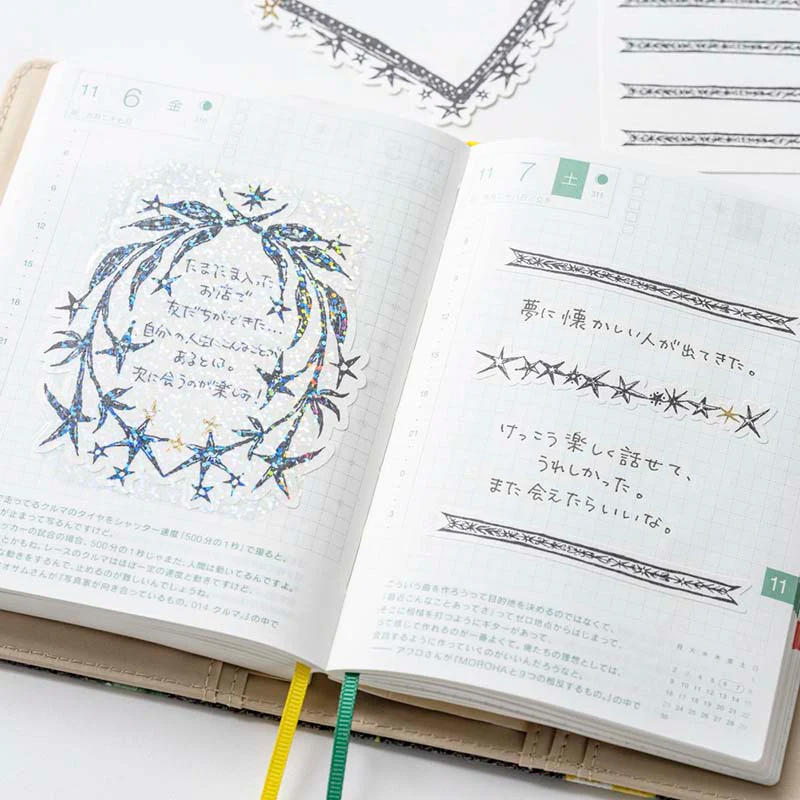 11 6 金
310
6
9
12
18
21
たまたま入った
お店で
友だちができた...
自分の人生にこんなことが
あるとは。
次に会うのが楽しみ!
で走ってるクルマのタイヤをシャッター速度「500分の1秒」で撮ると、
が止まって写るんですけど、
ッカーの試合の場合、500分の1秒じゃまだ、人間は動いてるんですよ。
とかもね。レースのクルマはほぼ一定の速度と動きですけど、
な動きをするんで、止めるのが難しいんでしょうね。
オサムさんが『写真家が向き合っているもの。014 クルマ。』の中で
11 7 土
311
夢に懐かしい人が出てきた。
けっこう楽しく話せて、
うれしかった。
また会えたらいいな。
こういう曲を作ろうって目的地を決めるのではなくて、
「最近こんなことあってさ」ってゼロ地点からはじまって、
そこに相槌を打つようにギターがあって、
って感じで作れるのが一番よくて。俺たちの理想としては、
会話するように作っていくのがいいんだろうなと。
—— アフロさんが『MOROHAと9つの相反するもの。』の中で
11
月 火 水 木 金 土 日
1
2 3 4 5 6 7 8
9 10 11 12 13 14 15
16 17 18 19 20 21 22
23 24 25 26 27 28 29
30